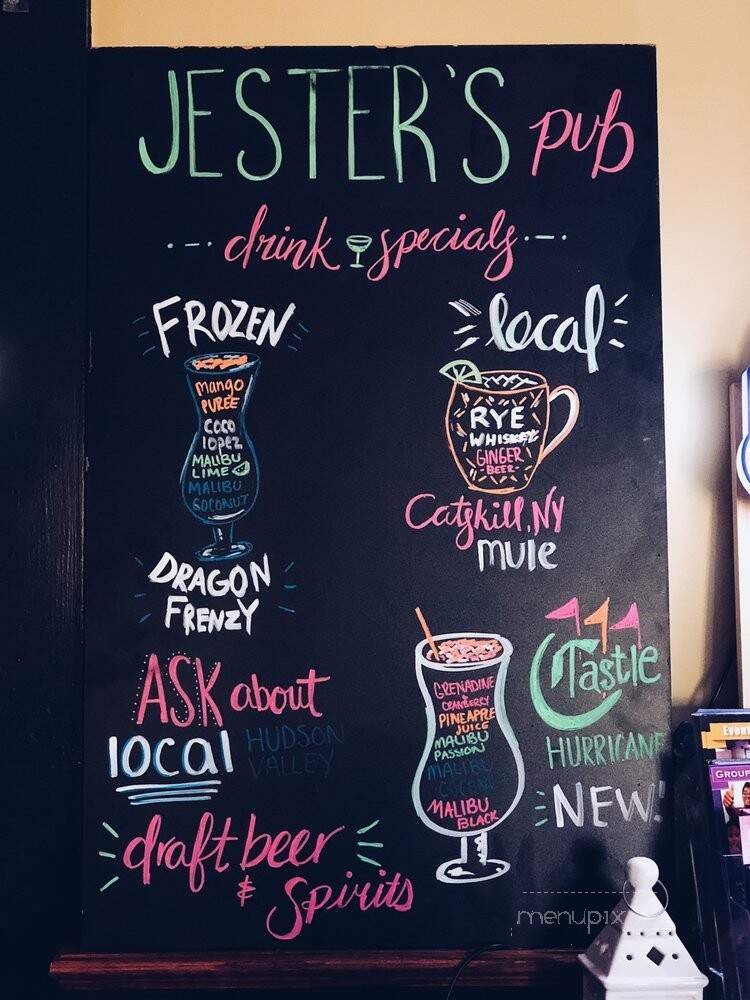 JESTER'S pub
drink specials
FROZEN
mango
PUREE
COCO
lopez
MALIBU
LIME
MALIBU
COCONUT
DRAGON
FRENZY
local
RYE
WHISKEY
GINGER
BEER
Catskill, NY
mule
ASK about
local HUDSON
VALLEY
draft beer
& Spirits
GRENADINE
CRANBERRY
PINEAPPLE
JUICE
MALIBU
PASSION
MALIBU
COCONUT
MALIBU
BLACK
Castle
HURRICANE
NEW!
GROUP
menupix